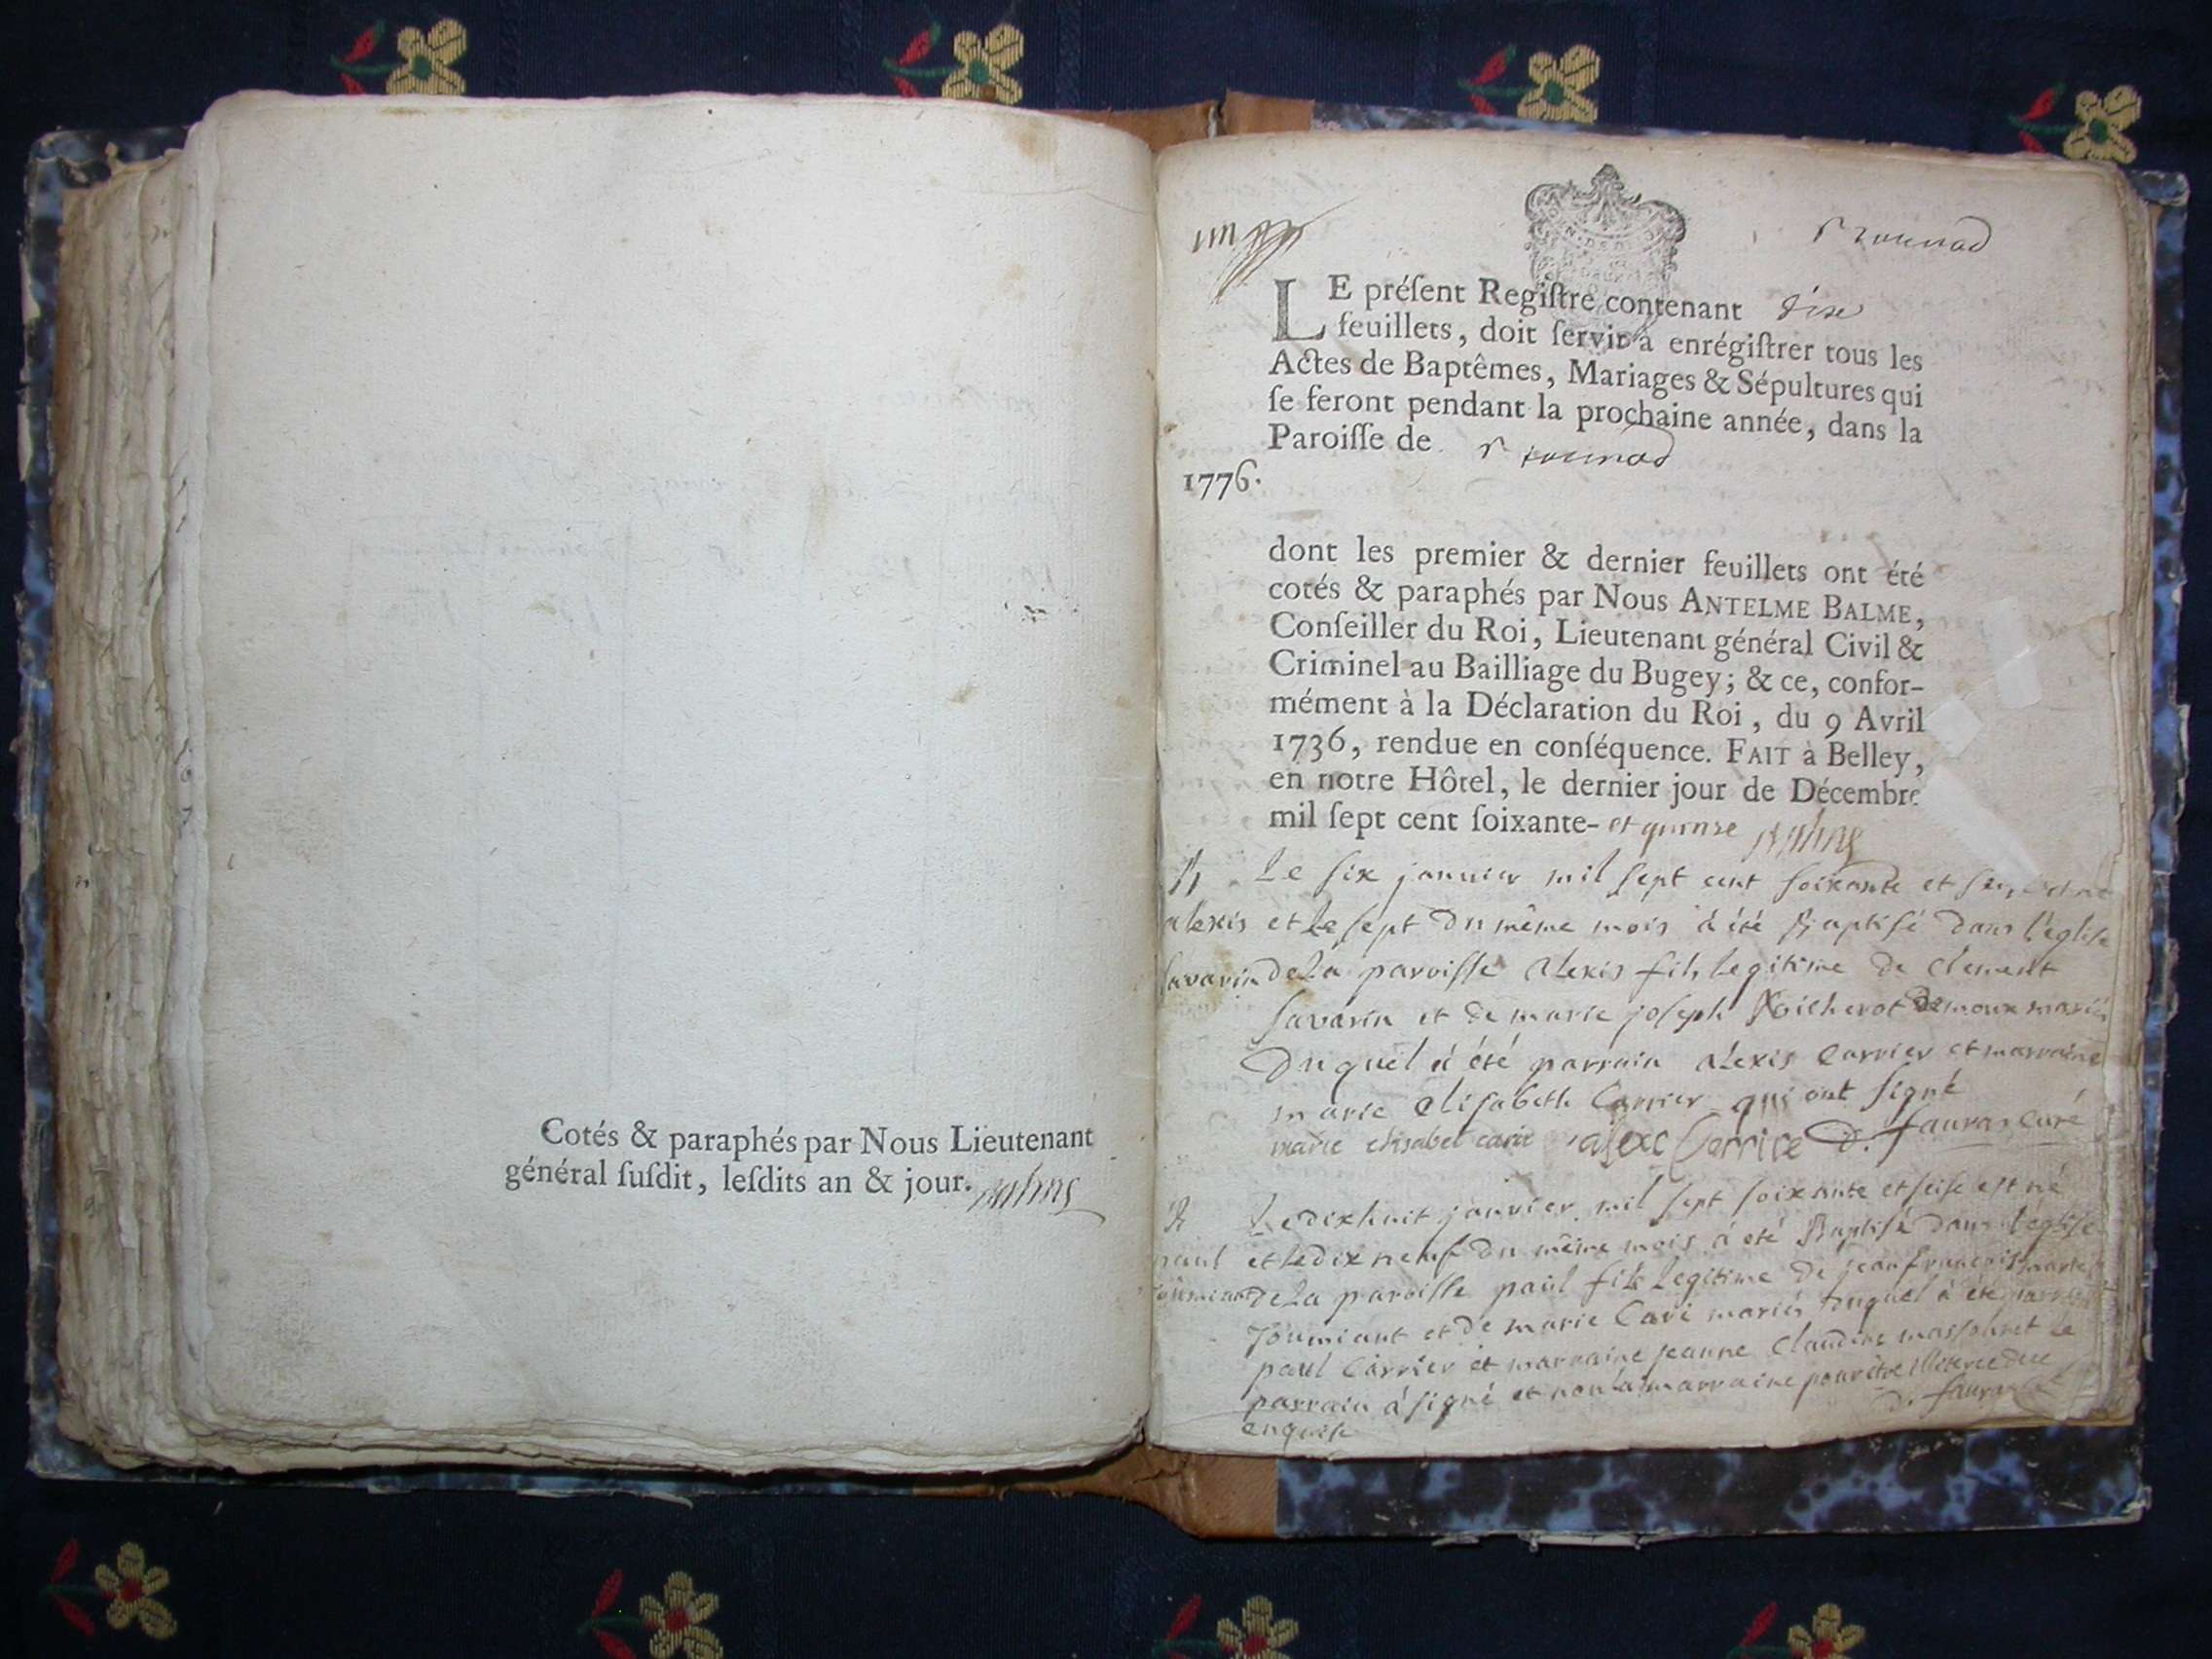 Cotés & paraphés par Nous Lieutenant
général ſuſdit, leſdits an & jour.
LE préſent Regiſtre contenant dixe
feuillets, doit ſervir à enrégiſtrer tous les
Actes de Baptêmes, Mariages & Sépultures qui
ſe feront pendant la prochaine année, dans la
Paroiſſe de
1776.
dont les premier & dernier feuillets ont été
cotés & paraphés par Nous ANTELME BALME,
Conſeiller du Roi, Lieutenant général Civil &
Criminel au Bailliage du Bugey; & ce, confor-
mément à la Déclaration du Roi, du 9 Avril
1736, rendue en conſéquence. FAIT à Belley,
en notre Hôtel, le dernier jour de Décembre
mil ſept cent ſoixante- et quinze
Le six janvier mil sept cent soixante et
alexis et le sept du même mois à été Baptisé dans l'eglise
savarin de la paroisse alexis fils legitime de clement
savarin et de marie joseph mariés
duquel à été parrain alexis Carrier et marraine
marie elisabeth Carrier qui ont signé
marie elisabet carie D. fauras curé
Le dix huit janvier mil sept soixante et seise est né
paul et le dix neuf du même mois à été Baptisé dans l'eglise
de la paroisse paul fils legitime de jean françois marie
et de marie Cavé mariés duquel à été parrain
paul Carrier et marraine jeanne Claudine le
parrain à signé et non la marraine pour être de ce
enquise D. fauras